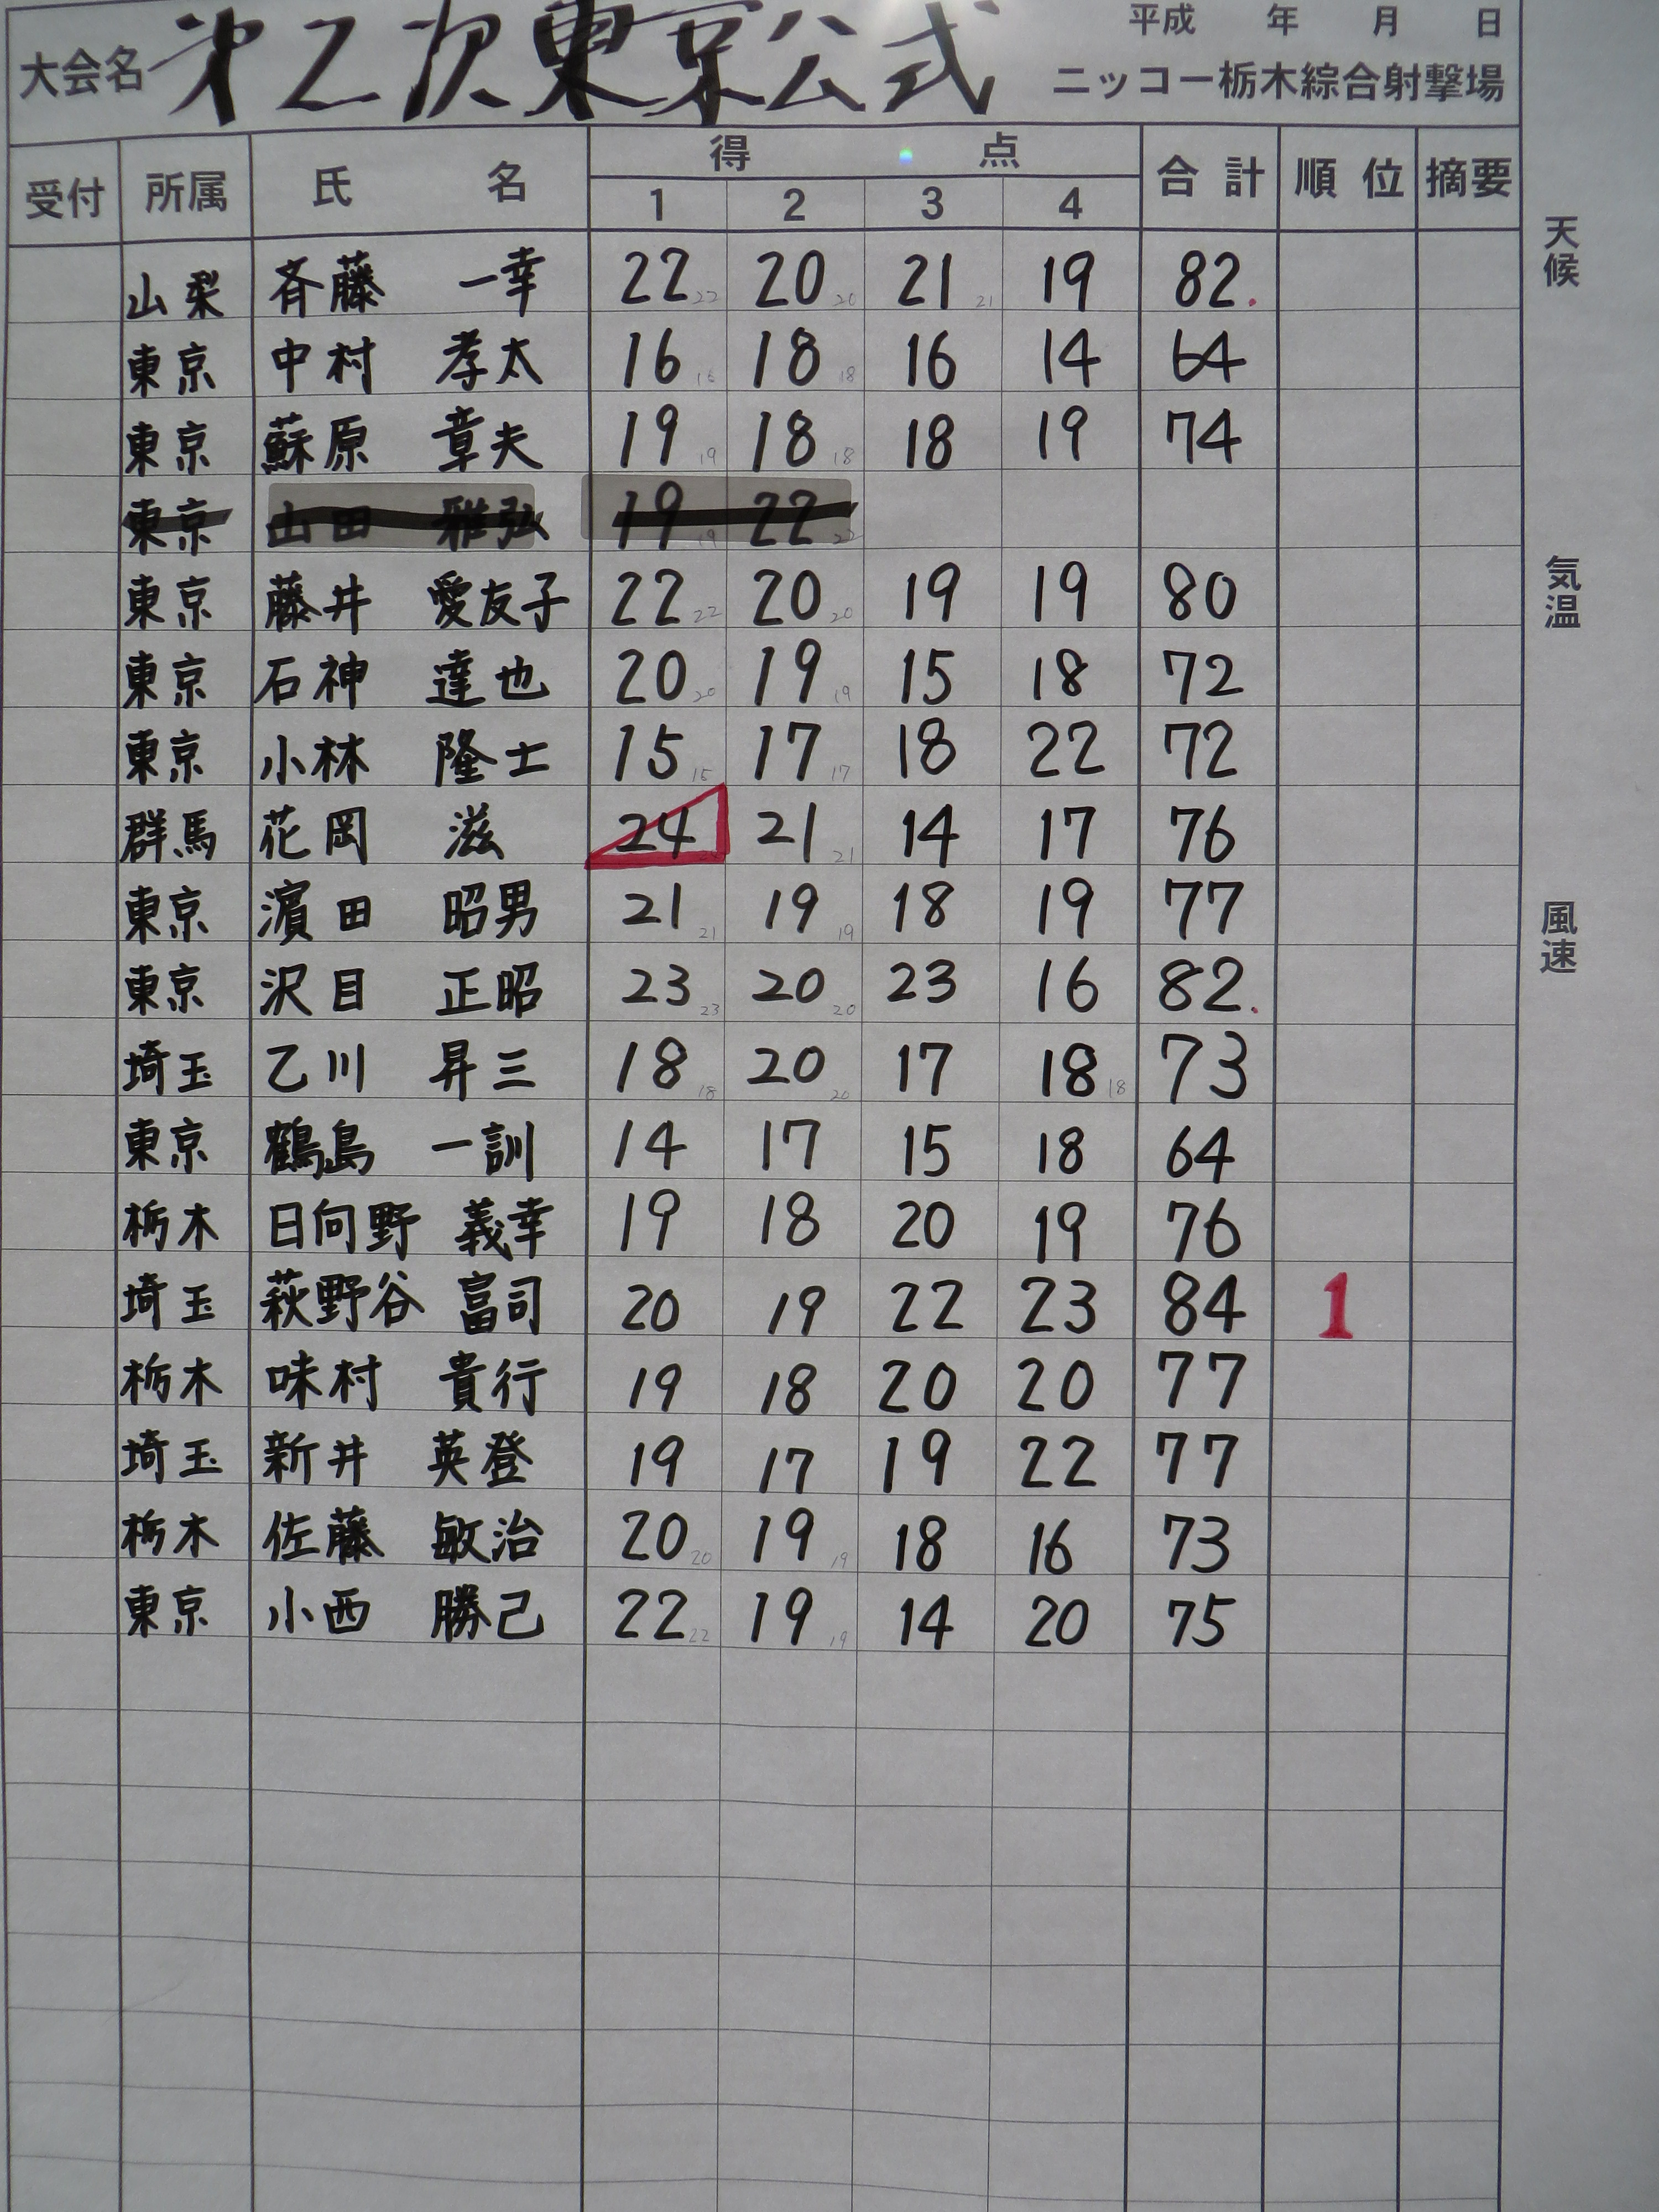 平成 年 月 日
大会名 第2次東京公式 ニッコー栃木綜合射撃場
受付 所属 氏 名 得 点 合計 順位 摘要
1 2 3 4
山梨 斉藤 一幸 22 22 20 20 21 21 19 82.
東京 中村 孝太 16 16 18 18 16 14 64
東京 蘇原 章夫 19 19 18 18 18 19 74
東京 山田 雅弘 19 19 22 22
東京 藤井 愛友子 22 22 20 20 19 19 80
東京 石神 達也 20 20 19 19 15 18 72
東京 小林 隆士 15 15 17 17 18 22 72
群馬 花岡 滋 24 21 21 14 17 76
東京 濱田 昭男 21 21 19 19 18 19 77
東京 沢目 正昭 23 23 20 20 23 16 82.
埼玉 乙川 昇三 18 18 20 20 17 18 18 73
東京 鶴島 一訓 14 17 15 18 64
栃木 日向野 義幸 19 18 20 19 76
埼玉 萩野谷 富司 20 19 22 23 84 1
栃木 味村 貴行 19 18 20 20 77
埼玉 新井 英登 19 17 19 22 77
栃木 佐藤 敏治 20 20 19 19 18 16 73
東京 小西 勝己 22 22 19 19 14 20 75
天候
気温
風速